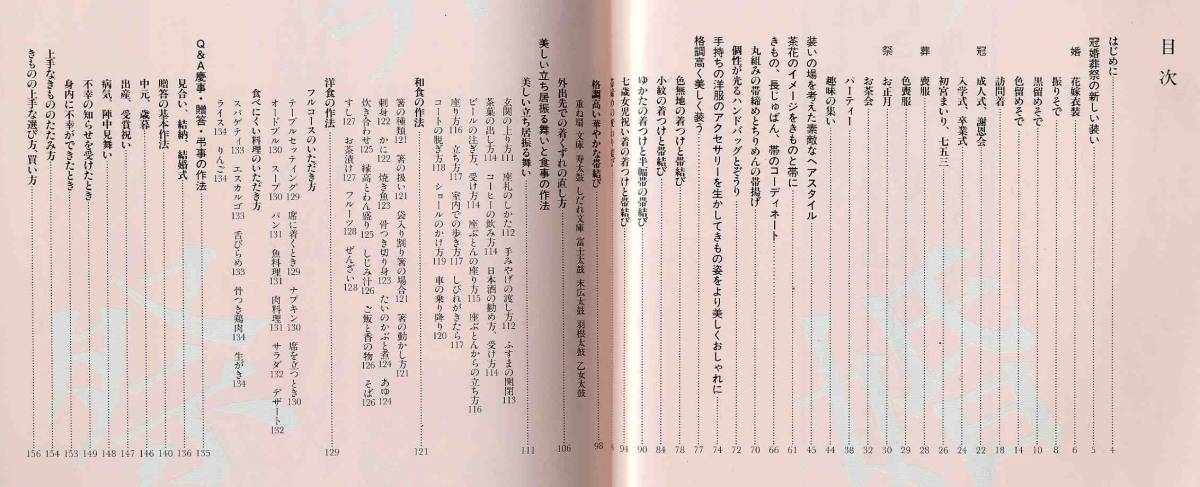 目次
はじめに 4
冠婚葬祭の新しい装い 5
婚 花嫁衣装 6
振りそで 8
黒留めそで 10
色留めそで 14
訪問着 18
冠 成人式、謝恩会 22
入学式、卒業式 24
初宮まいり、七五三 26
葬 喪服 28
色喪服 29
祭 お正月 30
お茶会 32
パーティー 38
趣味の集い 44
装いの場を考えた素敵なヘアスタイル 45
茶花のイメージをきものと帯に 61
きもの、長じゅばん、帯のコーディネート 66
丸組みの帯締めとちりめんの帯揚げ 70
個性が光るハンドバッグとぞうり 72
手持ちの洋服のアクセサリーを生かしてきもの姿をより美しくおしゃれに 74
格調高く美しく装う 77
色無地の着つけと帯結び 78
小紋の着つけと帯結び 84
ゆかたの着つけと半幅帯の帯結び 90
七歳女児祝い着の着つけと帯結び 94
格調高い華やかな帯結び 98
重ね扇 文庫 寿太鼓 しだれ文庫 富士太鼓 末広太鼓 羽根太鼓 乙女太鼓
外出先での着くずれの直し方 106
美しい立ち居振る舞いと食事の作法
美しい立ち居振る舞い 111
玄関の上り方111 座礼のしかた112 手みやげの渡し方112 ふすまの開閉113
茶菓の出し方114 コーヒーの飲み方114 日本酒の勧め方、受け方114
ビールの注ぎ方、受け方114 座ぶとんの座り方115 座ぶとんからの立ち方116
座り方116 立ち方117 室内での歩き方117 しびれがきたら117
コートの脱ぎ方118 ショールのかけ方119 車の乗り降り120
和食の作法 121
箸の種類121 箸の扱い121 袋入り割り箸の場合121 箸の動かし方121
刺身122 かに122 焼き魚123 骨つき切り身123 たいのかぶと煮124 あゆ124
炊き合わせ125 縁高とわん盛り125 しじみ汁126 ご飯と香の物126 そば126
すし127 お茶漬け127 フルーツ128 ぜんざい128
洋食の作法 129
フルコースのいただき方
テーブルセッティング129 席に着くとき129 ナプキン130 席を立つとき130
オードブル130 スープ130 パン131 魚料理131 肉料理131 サラダ132 デザート132
食べにくい料理のいただき方
スパゲティ133 エスカルゴ133 舌びらめ133 骨つき鶏肉134 生がき134
ライス134 りんご134
Q&A慶事・贈答・弔事の作法 135
見合い、結納、結婚式 136
贈答の基本作法 140
中元、歳暮 146
出産、受賞祝い 147
病気、陣中見舞い 148
不幸の知らせを受けたとき 149
身内に不幸ができたとき 153
上手なきもののたたみ方 154
きものの上手な選び方、買い方 156